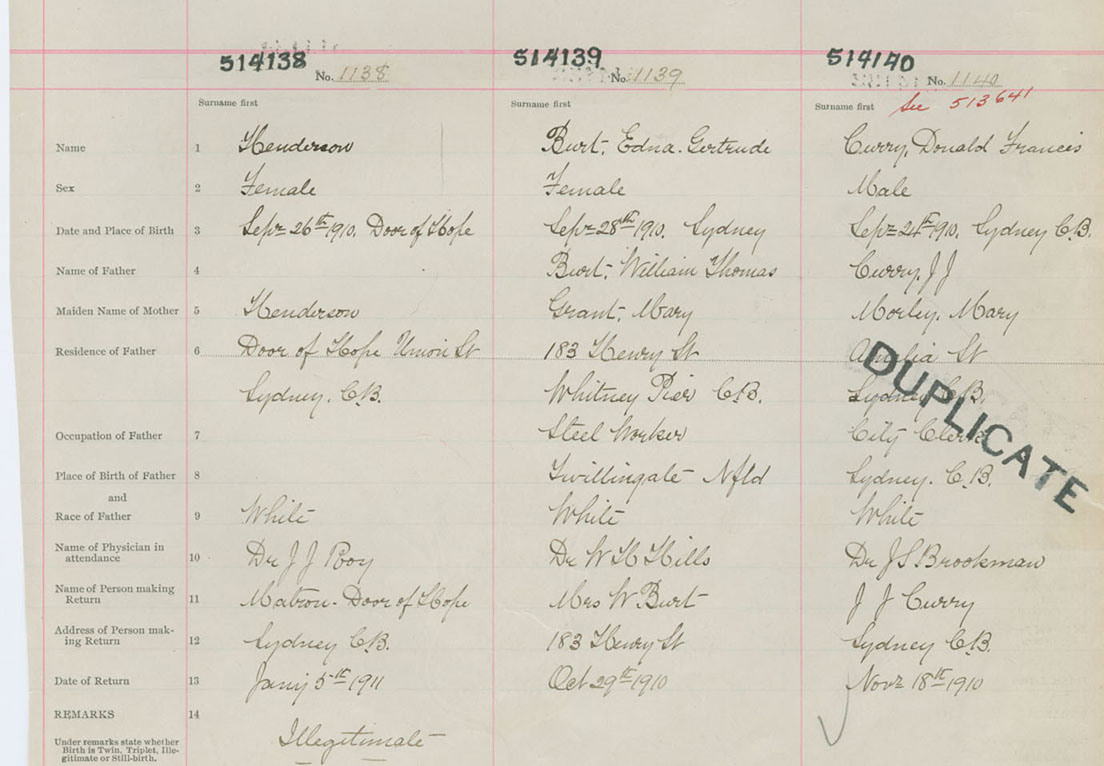 514138 514139 514140
No. 1138 No. 1139 No. 1140
Surname first Surname first Surname first See 513641
Name 1 Henderson Burt, Edna Gertrude Curry, Donald Francis
Sex 2 Female Female Male
Date and Place of Birth 3 Sept 26th 1910. Door of Hope Sept 28th 1910, Sydney Sept 24th 1910, Sydney C.B.
Name of Father 4 Burt, William Thomas Curry, J J
Maiden Name of Mother 5 Henderson Grant, Mary Morley, Mary
Residence of Father 6 Door of Hope Union St 183 Henry St Amelia St
Sydney. C.B. Whitney Pier C.B. Sydney C.B.
DUPLICATE
Occupation of Father 7 Steel Worker City Clerk
Place of Birth of Father 8 Twillingate Nfld Sydney. C.B.
and
Race of Father 9 White White White
Name of Physician in
attendance 10 Dr J J Roy Dr W H Hills Dr J S Brookman
Name of Person making
Return 11 Matron - Door of Hope Mrs W Burt J J Curry
Address of Person mak-
ing Return 12 Sydney C.B. 183 Henry St Sydney C.B.
Date of Return 13 Jany 5th 1911 Oct 29th 1910 Nov 18th 1910
REMARKS 14
Under remarks state whether
Birth is Twin, Triplet, Ille-
gitimate or Still-birth.
Illegitimate